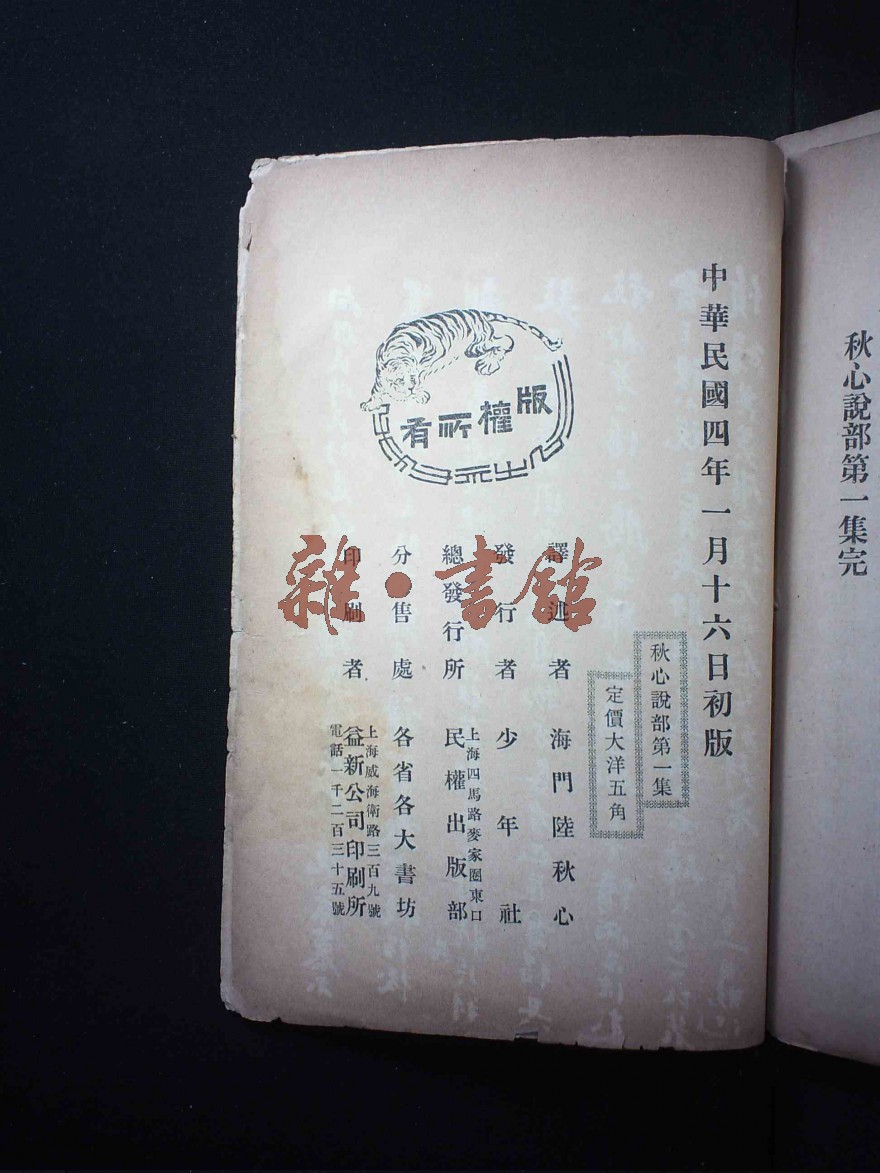 秋心說部第一集完
中華民國四年一月十六日初版
秋心說部第一集
定價大洋五角
版權所有
譯述者 海門陸秋心
發行者 少年社
總發行所 上海四馬路麥家圈東口
民權出版部
分售處 各省各大書坊
印刷者 上海威海衛路三百九號
益新公司印刷所
電話一千二百三十五號
雜·書館